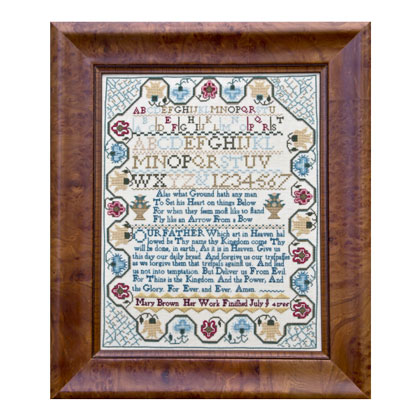 ABCDEFGHIJKLMNOPQRS
ABCDEFGHIJKL
MNOPQRSTUV
WXYZ& 1234567
Alas what Ground hath any man
To Set his Heart on things Below
For when they seem most like to Stand
Fly like an Arrow From a Bow
OUR FATHER Which art in Heaven hal
lowed be Thy name thy Kingdom come Thy
will be done in earth, As it is in Heaven Give us
this day our daily bread And forgive us our trespasses
as we forgive them that trespass against us And lead
us not into temptation But Deliver us From Evil
For Thine is the Kingdom And the Power, And
the Glory For Ever and Ever Amen
Mary Brown Her Work Finished July